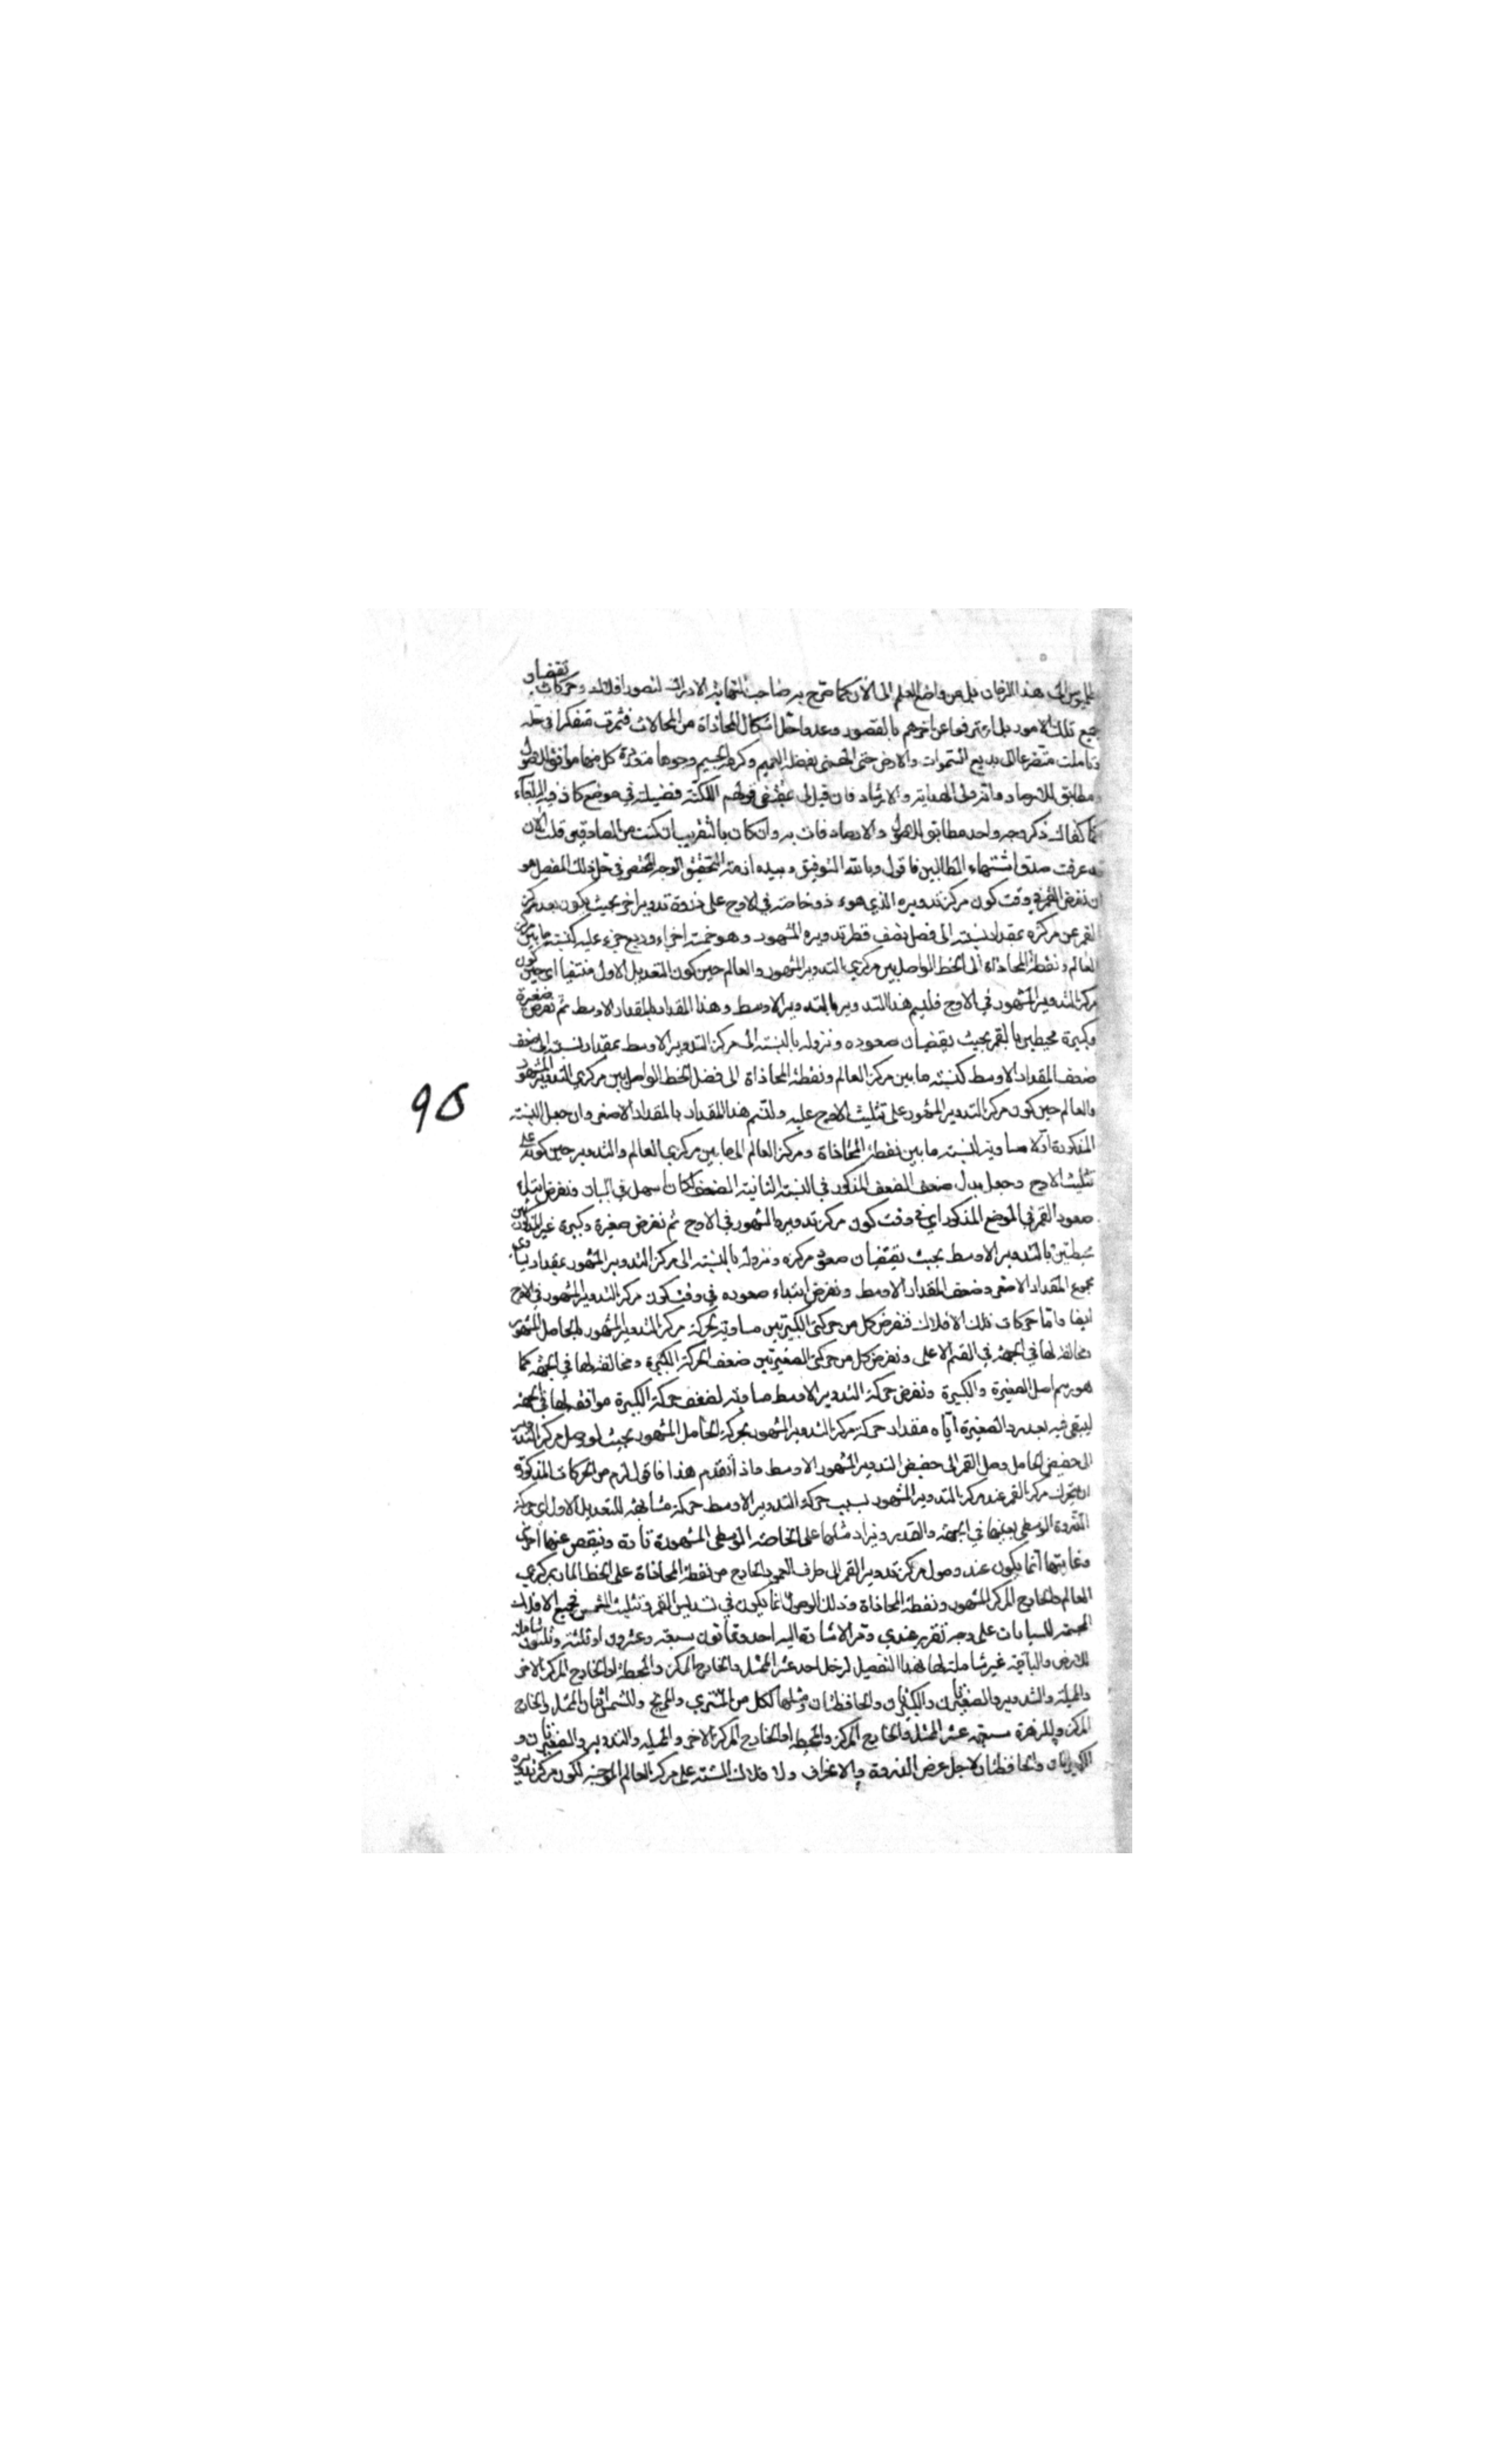 هذا الزمان بل من واضع العلم الى الآن كما صرح به صاحب نهاية الادراك لتصور افلاك وحركات تقتضيان
جميع تلك الامور بل اعترفوا عن اخرهم بالقصور وعدوا حل اشكال المحاذاة من المحالات فشمرت متفكرا في حله
وتاملت متضرعا الى بديع السموات والارض حتى الهمني بفضله العميم وكرمه الجسيم وجوها متعددة كل منها موافق للاصول
ومطابق للارصاد والهداية والارشاد فان قيل في موضع كاذ فيه البلغاء
كفاك ذكر وجه واحد مطابق للاصول والارصاد فات به وان كان بالتقريب ان كنت من الصادقين قلت الآن
قد عرفت صدق اشتهاء الطالبين فاقول وبالله التوفيق وبيده ازمة التحقيق الوجه المختصر في حل ذلك المفصل هو
ان نفرض القمر في وقت كون مركز تدويره الذي هو ذو خاصته في الاوج على ذروة تدوير اخر بحيث يكون بعد مركز
القمر عن مركزه بمقدار نسبته الى فضل نصف قطر تدويره المشهور وهو خمسة اجزاء وربع جزء عليه كنسبة ما بين مركز
العالم ونقطة المحاذاة الى الخط الواصل بين مركزي التدوير المشهور والعالم حين كون التعديل الاول منتفيا اي حين كون
مركز التدوير المشهور في الاوج فليسم هذا التدوير بالتدوير الاوسط وهذا المقدار بالمقدار الاوسط ثم نفرض صغيرة
وكبيرة محيطين بالقمر بحيث تقتضيان صعوده ونزوله بالنسبة الى مركز التدوير الاوسط بمقدار نسبته الى ضعف
ضعف المقدار الاوسط كنسبة ما بين مركز العالم ونقطة المحاذاة الى فضل الخط الواصل بين مركزي التدوير المشهور
والعالم حين كون مركز التدوير المشهور على تثليث الاوج عليه ولنسم هذا المقدار بالمقدار الاصغر وان جعل النسبة
المذكورة اولا مساوية لنسبة ما بين نقطة المحاذاة ومركز العالم الى ما بين مركزي العالم والتدوير حين كونه على
تثليث الاوج وجعل بدل ضعف الضعف المذكور في النسبة الثانية الضعف لكان اسهل في البيان ونفرض ابتداء
صعود القمر في الموضع المذكور اي في وقت كون مركز تدويره المشهور في الاوج ثم نفرض صغيرة وكبيرة غير المذكورتين
محيطتين بالتدوير الاوسط بحيث تقتضيان صعود مركزه ونزوله بالنسبة الى مركز التدوير المشهور بمقدار يساوي
مجموع المقدار الاصغر وضعف المقدار الاوسط ونفرض ابتداء صعوده في وقت كون مركز التدوير المشهور في الاوج
ايضا واما حركات تلك الافلاك فنفرض كل من حركتي الكبيرتين مساوية لحركة مركز التدوير المشهور بالحامل المشهور
ومخالفة لها في الجهة في القسم الاعلى ونفرض كل من حركتي الصغيرتين ضعف الحركة الكبيرة ومخالفة لها في الجهة كما
هو رسم اصل الصغيرة والكبيرة ونفرض حركة التدوير الاوسط مساوية لضعف حركة الكبيرة موافقة لها في الجهة
ليبقى فيه بعد رد الصغيرة اياه مقدار حركة مركز التدوير المشهور بحركة الحامل المشهور بحيث لو وصل مركز التدوير
الى حضيض الحامل وصل القمر الى حضيض التدوير المشهور الاوسط واذ اتقدم هذا فاقول لزم من الحركات المذكورة
ان يتحرك مركز القمر عند مركز التدوير المشهور بسبب حركة التدوير الاوسط حركة مشابهة للتعديل الاول اي حركة
الذروة الوسطى بعينها في الجهة والقدر ويزاد مثلها على الخاصة الوسطى المشهورة تارة وينقص عنها اخرى
وغايتها انما يكون عند وصول مركز تدوير القمر الى طرف العمود الخارج من نقطة المحاذاة على الخط المار بمركزي
العالم والخارج المركز المشهور ونقطة المحاذاة وذلك الوصول انما يكون في تسديس القمر وتثليث الشمس فجميع الافلاك
المجسمة للسيارات على وجه تقرر عندي وتمر الاشارة اليه احد وثمانون سبعة وعشرون او ثلثة وثلثون شاملة
للارض والباقية غير شاملة لها وهذا التفصيل لزحل احد عشر الممثل والخارج المركز والمحيطة او الخارج المركز الاخر
والميلة والتدوير والصغيرتان والكبيرتان والحافظتان ومثلها لكل من المشتري والمريخ وللشمس اثنان الممثل والخارج
المركز وللزهرة سبعة عشر الممثل والخارج المركز والمحيطة او الخارج المركز الاخر والميلة والتدوير والصغيرتان و
الكبيرتان والحافظتان لاجل عرض الذروة والانحراف والافلاك الستة على مركز العالم الموجبة لكون مركز تدويره
95